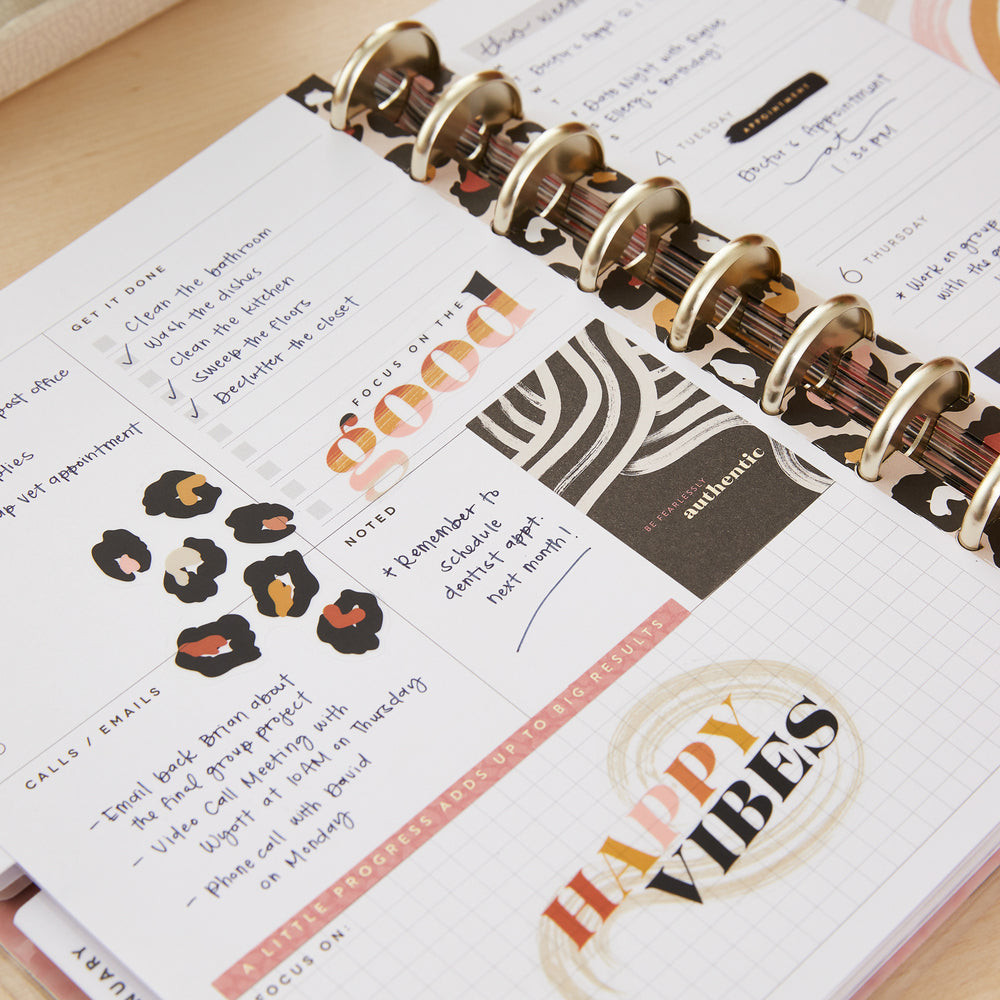 this week
Doctor's Appt @ 1
Date Night with
Ellery's Birthday!
4 TUESDAY
APPOINTMENT
Doctor's Appointment
at
1:30 PM
6 THURSDAY
* Work on group
with the
GET IT DONE
Clean the bathroom
Wash the dishes
Clean the kitchen
Sweep the floors
Declutter the closet
FOCUS ON THE
good
post office
vet appointment
NOTED
* Remember to
schedule
dentist appt.
next month!
BE FEARLESSLY
authentic
CALLS / EMAILS
- Email back Brian about
the final group project
- Video Call Meeting with
Wyatt at 10AM on Thursday
- Phone call with David
on Monday
A LITTLE PROGRESS ADDS UP TO BIG RESULTS
FOCUS ON:
HAPPY
VIBES